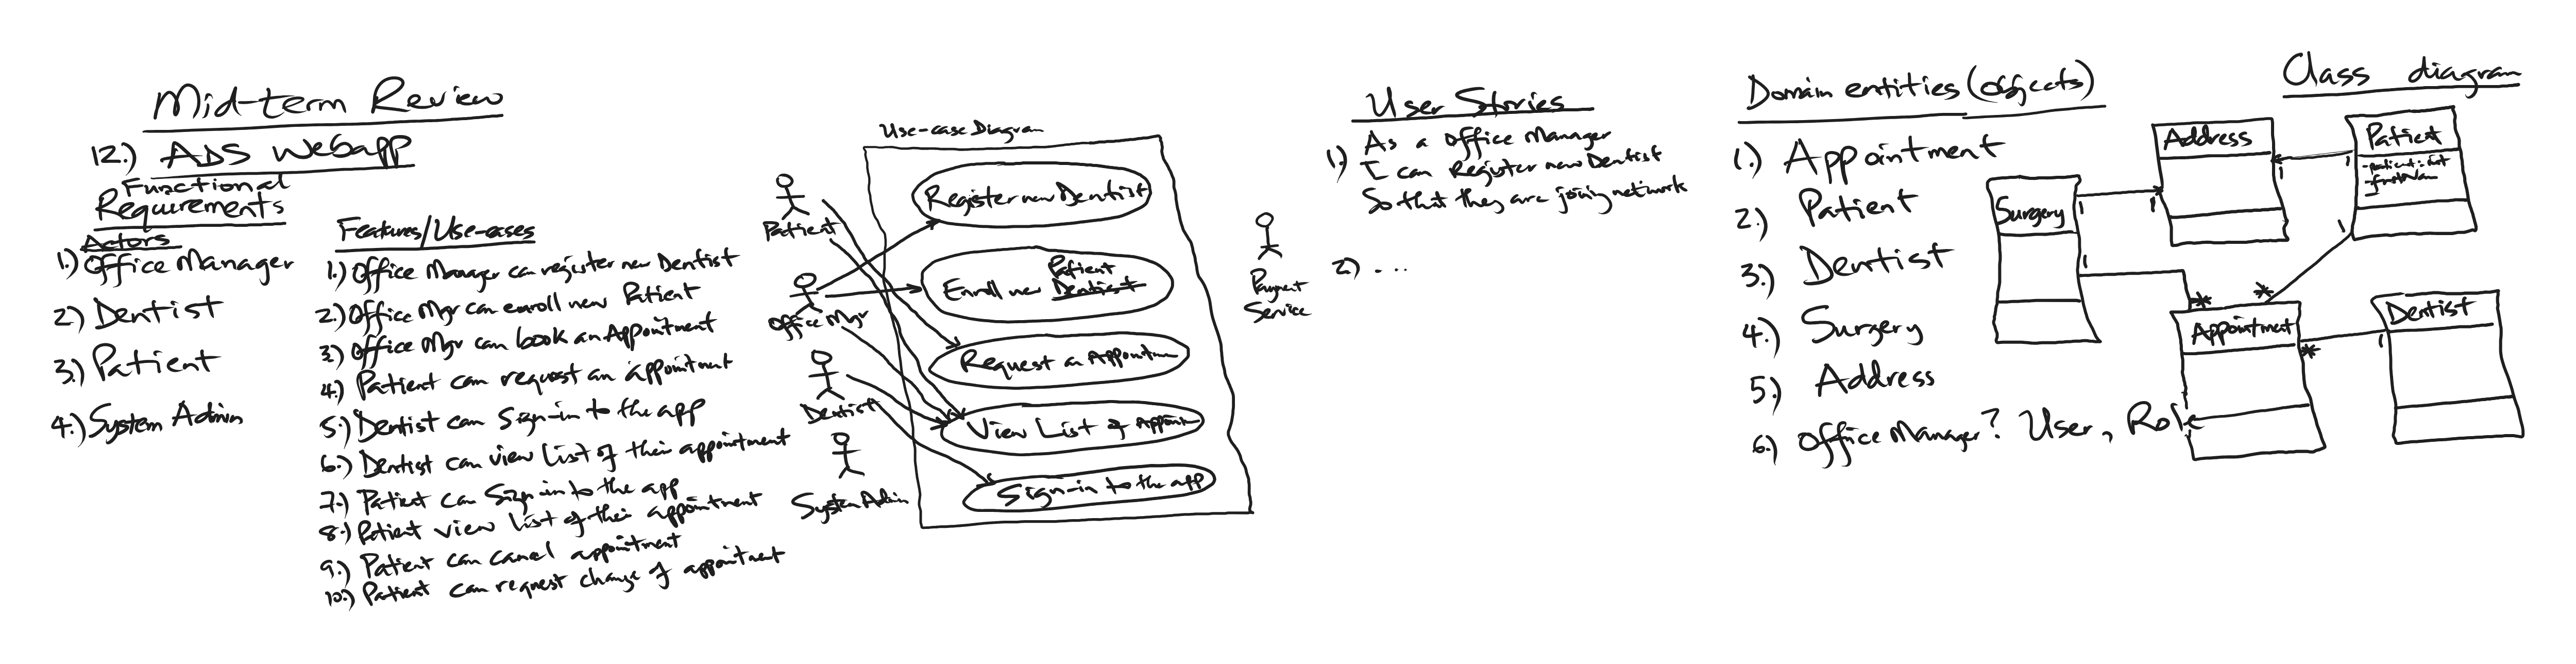 Mid-term Review
12.) ADS Webapp
Functional
Requirements
Actors
1.) Office Manager
2.) Dentist
3.) Patient
4.) System Admin
Features/Use-cases
1.) Office Manager can register new Dentist
2.) Office Mgr can enroll new Patient
3.) Office Mgr can book an Appointment
4.) Patient can request an appointment
5.) Dentist can Sign-in to the app
6.) Dentist can view List of their appointment
7.) Patient can Sign-in to the app
8.) Patient view List of their appointment
9.) Patient can cancel appointment
10.) Patient can request change of appointment
Use-case Diagram
Patient
Office Mgr
Dentist
System Admin
Register new Dentist
Patient
Enroll new Dentist
Request an Appointm
View List of Appoint
Sign-in to the app
Payment
Service
User Stories
1.) As a Office Manager
I can Register new Dentist
So that they are joining network
2.) ...
Domain entities (objects)
1.) Appointment
2.) Patient
3.) Dentist
4.) Surgery
5.) Address
6.) Office Manager? User, Role
Class diagram
Address
Patient
Surgery
1
1
1
1
1
1
*
*
Appointment
*
1
Dentist